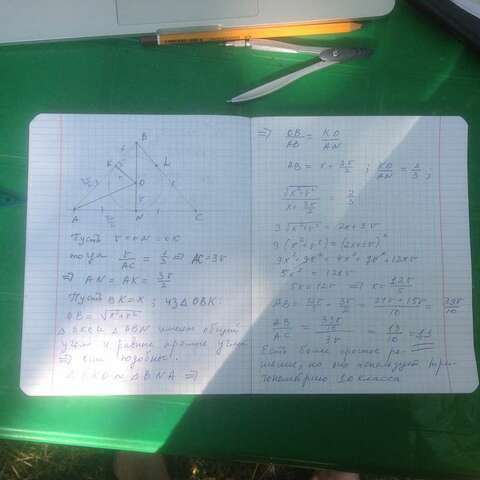 B
K
L
O
A
N
C
Пусть r = ON = OK
тогда r/AC = 1/3 ⇒ AC = 3r
⇒ AN = AK = 3r/2
Пусть BK = x; из △OBK:
OB = √(x²+r²)
△ BKO и △ABN имеют общий
угол и равные прямые углы
⇒ они подобны.
△ BKO ∼ △BNA ⇒
⇒ OB/AB = KO/AN
AB = x + 3r/2 ; KO/AN = 2/3;
√(x²+r²)/(x + 3r/2) = 2/3
3√(x²+r²) = 2x+3r
9(x²+r²) = (2x+3r)²
9x²+9r² = 4x²+9r²+12xr
5x² = 12xr
5x = 12r ⇒ x = 12r/5
= 39r/10
AB/AC = 39r/10 / 3r = 13/10 = 1,3
Есть более простое ре-
шение, но оно использует три-
гонометрию 10 класса